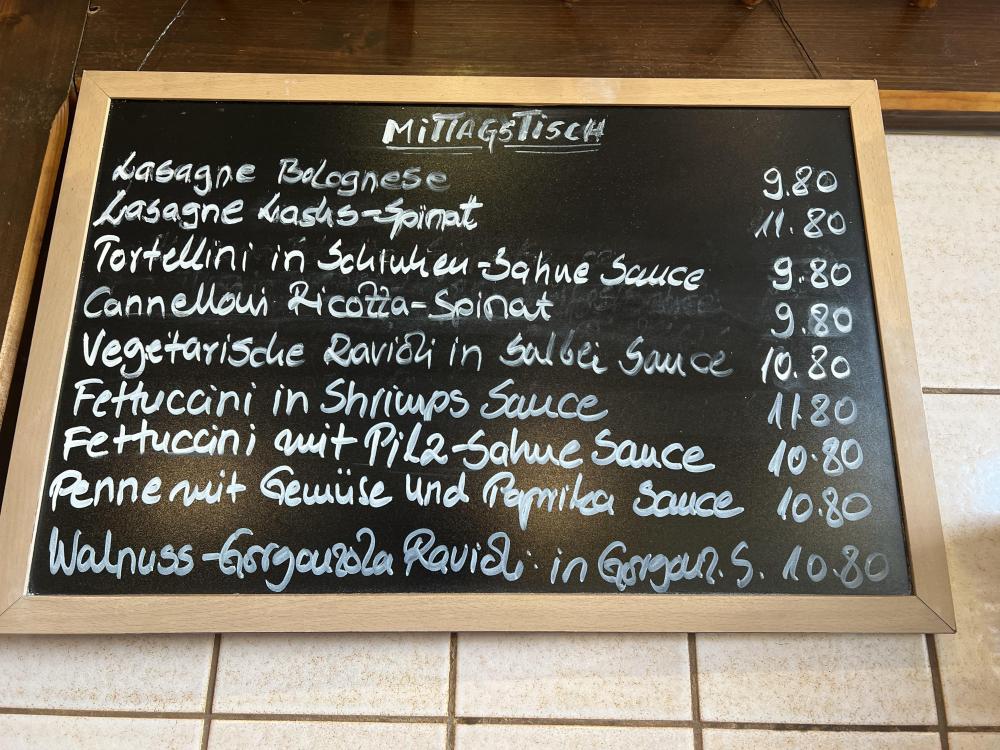 MiTTAGSTiSCH
Lasagne Bolognese 9.80
Lasagne Lachs-Spinat 11.80
Tortellini in Schinken-Sahne Sauce 9.80
Cannelloni Ricotta-Spinat 9.80
Vegetarische Ravioli in Salbei Sauce 10.80
Fettuccini in Shrimps Sauce 11.80
Fettuccini mit Pilz-Sahne Sauce 10.80
Penne mit Gemüse und Paprika Sauce 10.80
Walnuss-Gorgonzola Ravioli in Gorgonz. S. 10.80